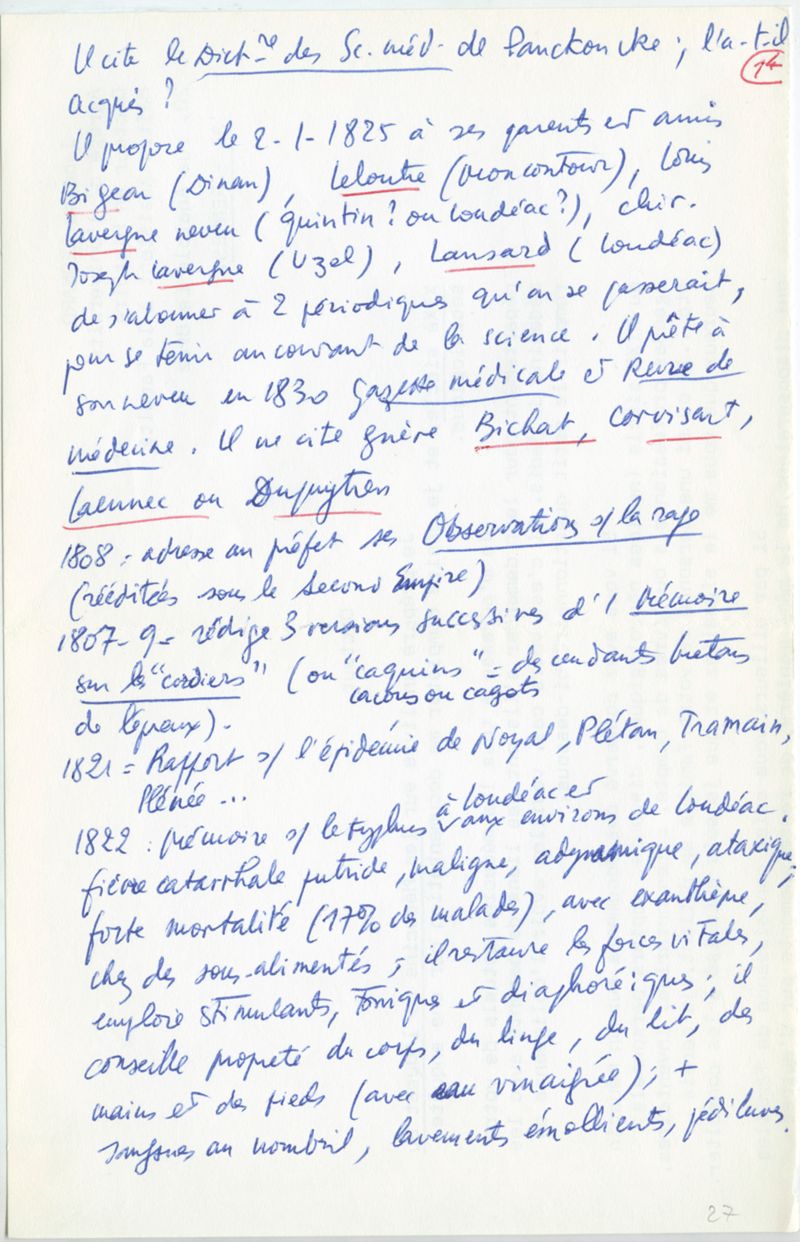 Il cite le Dict.re des Sc. méd. de Panckoucke ; l'a-t-il
14
acquis ?
Il propose le 2-1-1825 à ses parents et amis
Bigeon (Dinan), Leloutre (Moncontour), Louis
Lavergne neveu (Quintin ? ou Loudéac ?), chir.
Joseph Lavergne (Uzel), Lansard (Loudéac)
de s'abonner à 2 périodiques qu'on se passerait,
pour se tenir au courant de la science. Il prête à
son neveu en 1830 Gazette médicale et Revue de
médecine. Il ne cite guère Bichat, Corvisart,
Laennec ou Dupuytren
1808 : adresse au préfet ses Observations s/ la rage
(rééditées sous le Second Empire)
1807-9 = rédige 3 versions successives d'1 Mémoire
sur les "cordiers" (ou "caquins" = descendants bretons
cacous ou cagots
de lépreux).
1821 = Rapport s/ l'épidémie de Noyal, Plétan, Tramain,
Plénée ...
1822 : Mémoire s/ le typhus à Loudéac et aux environs de Loudéac.
fièvre catarrhale putride, maligne, adynamique, ataxique,
forte mortalité (17% des malades), avec exanthème,
chez des sous-alimentés ; il restaure les forces vitales,
emploie stimulants, toniques et diaphoréiques ; il
conseille propreté du corps, du linge, du lit, des
mains et des pieds (avec eau vinaigrée) ; +
sangsues au nombril, lavements émollients, pédiluves.
27